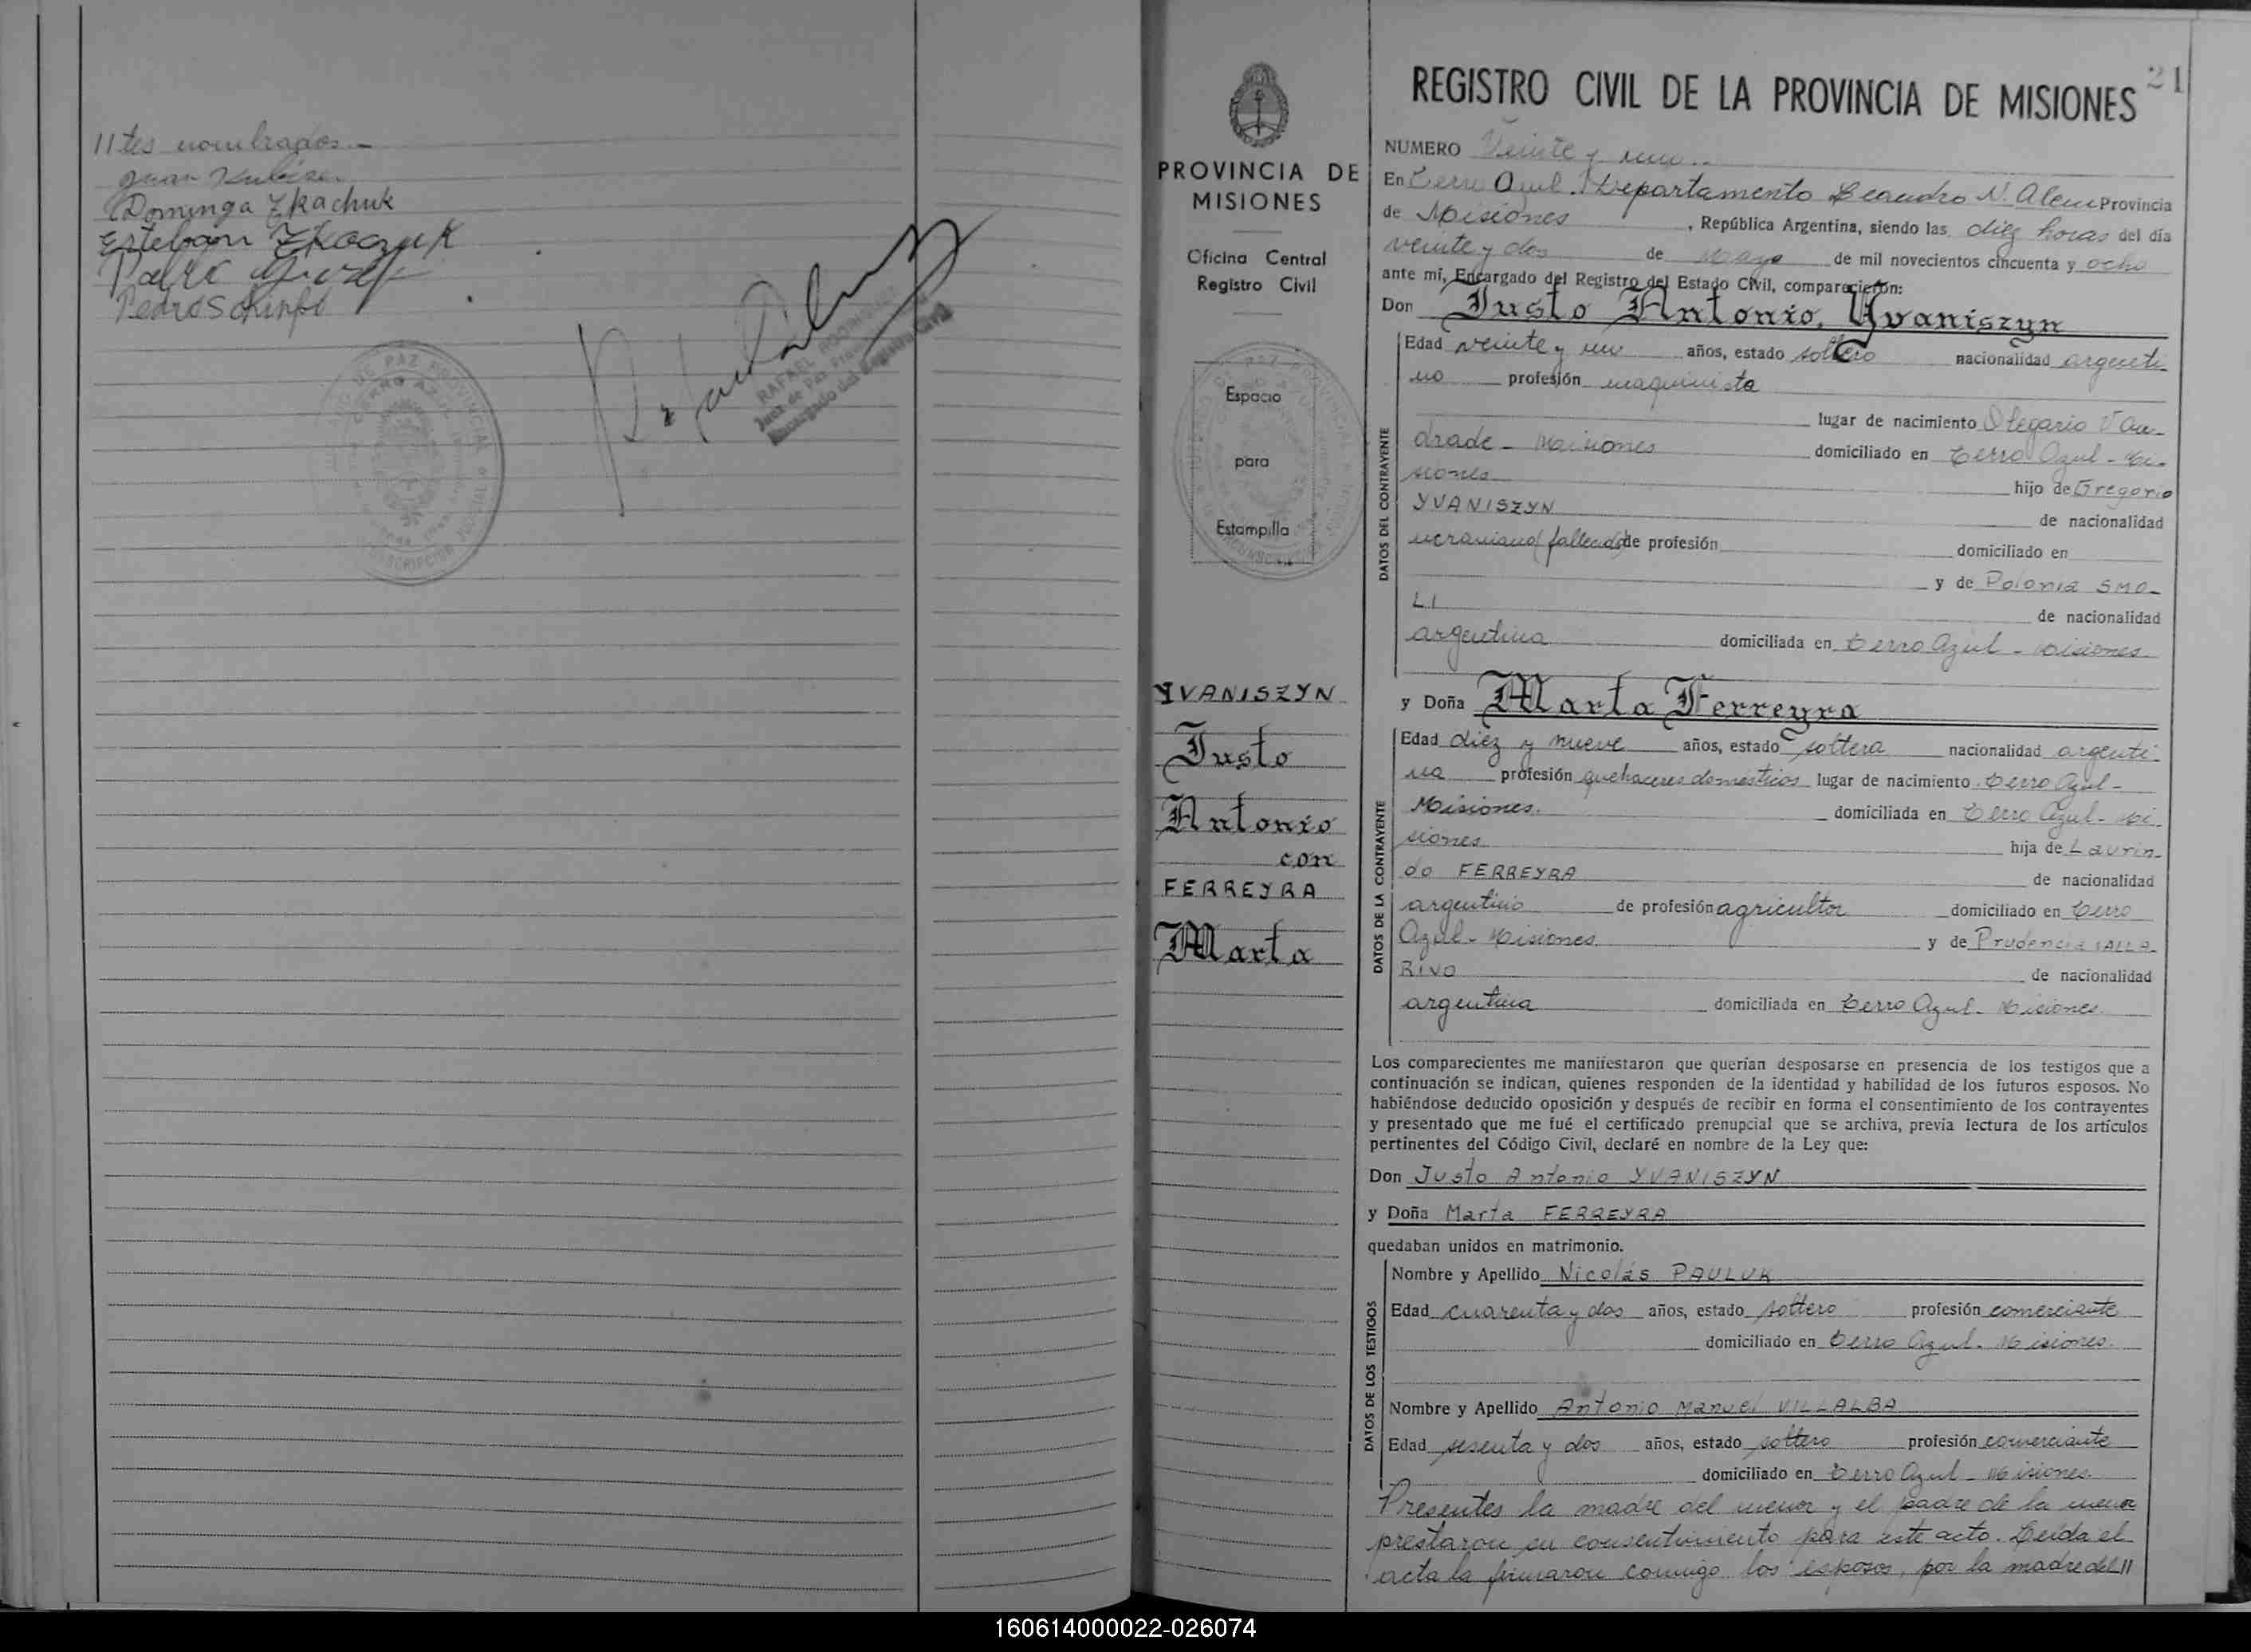 11 tes nombrados.-
Juan
Dominga Tkachuk
Esteban Tkaczuk
Pedro Schinfl
JUZGADO DE PAZ PROVINCIAL
CERRO AZUL
RAFAEL RODRIGUEZ
Juez de Paz Prov.
Encargado del Registro Civil
PROVINCIA DE
MISIONES
Oficina Central
Registro Civil
Espacio
para
Estampilla
YVANISZYN
Justo
Antonio
con
FERREYRA
Marta
21
REGISTRO CIVIL DE LA PROVINCIA DE MISIONES
NUMERO Veinte y uno.-
En Cerro Azul. Departamento Leandro N. Alem Provincia
de Misiones, República Argentina, siendo las diez horas del día
veinte y dos de Mayo de mil novecientos cincuenta y ocho
ante mí, Encargado del Registro del Estado Civil, comparecieron:
Don Justo Antonio, Yvaniszyn
DATOS DEL CONTRAYENTE
Edad veinte y un años, estado soltero nacionalidad argenti-
no profesión maquinista
lugar de nacimiento Olegario V An-
drade - Misiones domiciliado en Cerro Azul - Mi-
siones hijo de Gregorio
YVANISZYN de nacionalidad
ucraniano (fallecido) de profesión domiciliado en
y de Polonia SMO-
LI de nacionalidad
argentina domiciliada en Cerro Azul - Misiones
y Doña Marta Ferreyra
DATOS DE LA CONTRAYENTE
Edad diez y nueve años, estado soltera nacionalidad argenti-
na profesión quehaceres domésticos lugar de nacimiento Cerro Azul -
Misiones. domiciliada en Cerro Azul - Mi-
siones hija de Laurin-
do FERREYRA de nacionalidad
argentino de profesión agricultor domiciliado en Cerro
Azul - Misiones y de Prudencia
RIVO de nacionalidad
argentina domiciliada en Cerro Azul - Misiones.
Los comparecientes me manifestaron que querían desposarse en presencia de los testigos que a
continuación se indican, quienes responden de la identidad y habilidad de los futuros esposos. No
habiéndose deducido oposición y después de recibir en forma el consentimiento de los contrayentes
y presentado que me fué el certificado prenupcial que se archiva, previa lectura de los artículos
pertinentes del Código Civil, declaré en nombre de la Ley que:
Don Justo Antonio YVANISZYN
y Doña Marta FERREYRA
quedaban unidos en matrimonio.
DATOS DE LOS TESTIGOS
Nombre y Apellido Nicolás PAULUK
Edad cuarenta y dos años, estado soltero profesión comerciante
domiciliado en Cerro Azul - Misiones.
Nombre y Apellido Antonio Manuel VILLALBA
Edad sesenta y dos años, estado soltero profesión comerciante
domiciliado en Cerro Azul - Misiones.
Presentes la madre del menor y el padre de la menor
prestaron su consentimiento para este acto. Leída el
acta la firmaron conmigo los esposos, por la madre del 11
160614000022-026074